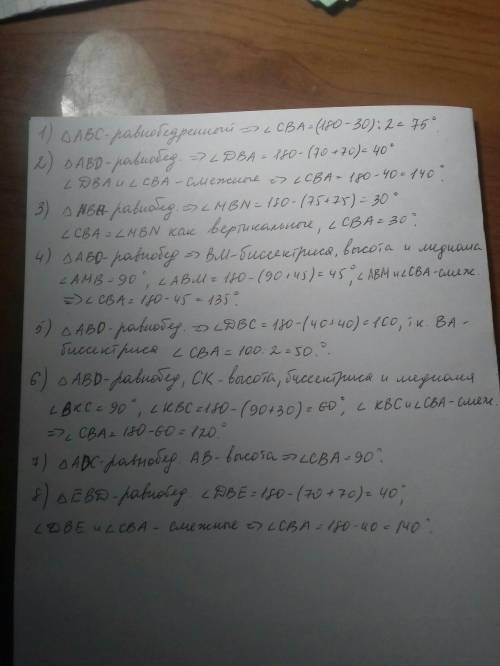 1) △ABC-равнобедренный ⇒ ∠CBA=(180-30):2=75°.
2) △ABD-равнобед. ⇒ ∠DBA=180-(70+70)=40°
∠DBA и ∠CBA-смежные ⇒ ∠CBA=180-40=140°.
3) △MBN-равнобед. ⇒ ∠MBN=180-(75+75)=30°
∠CBA=∠MBN как вертикальные, ∠CBA=30°.
4) △ABD-равнобед ⇒ BM-биссектриса, высота и медиана
∠AMB=90°, ∠ABM=180-(90+45)=45°, ∠ABM и ∠CBA-смеж.
⇒ ∠CBA=180-45=135°.
5) △ABD-равнобед. ⇒ ∠DBC=180-(40+40)=100, т.к. BA-
биссектриса ∠CBA=100:2=50°.
6) △ABD-равнобед, CK-высота, биссектриса и медиана
∠BKC=90°, ∠KBC=180-(90+30)=60°, ∠KBC и ∠CBA-смеж.
⇒ ∠CBA=180-60=120°
7) △ADC-равнобед. AB-высота ⇒ ∠CBA=90°.
8) △EBD-равнобед. ∠DBE=180-(70+70)=40°,
∠DBE и ∠CBA-смежные ⇒ ∠CBA=180-40=140°.